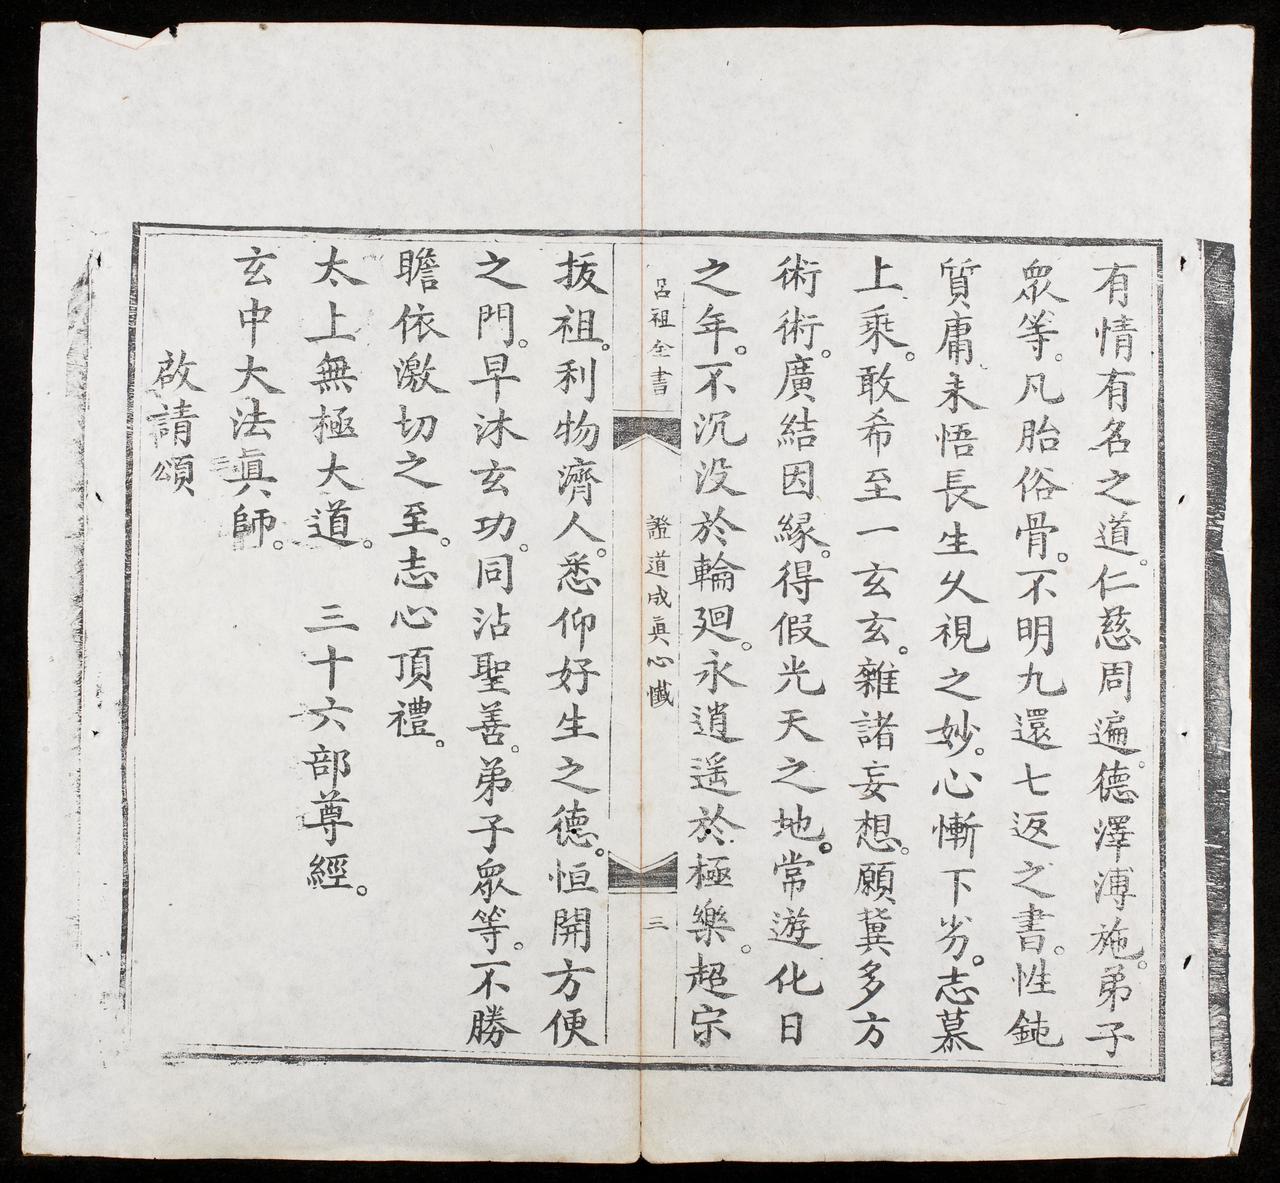 有情有名之道。仁慈周遍。德澤溥施。弟子
眾等。凡胎俗骨。不明九還七返之書。性鈍
質庸。未悟長生久視之妙。心慚下劣。志慕
上乘。敢希至一玄玄。雜諸妄想。願冀多方
術術。廣結因緣。得假光天之地。常遊化日
之年。不沉没於輪廻。永逍遥於極樂。超宗
呂祖全書
證道成眞心懺
三
拔祖。利物濟人。悉仰好生之德。恒開方便
之門。早沐玄功。同沾聖善。弟子眾等。不勝
瞻依激切之至。志心頂禮。
太上無極大道。 三十六部尊經。
玄中大法眞師。
啟請頌